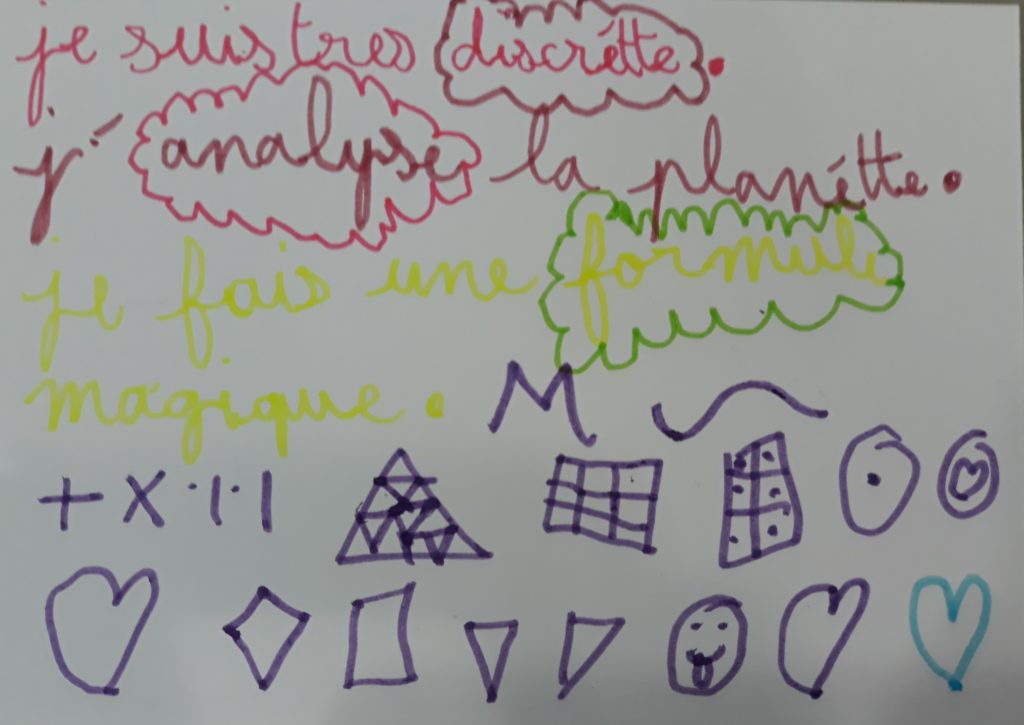 je suis tres discrétte.
j'analyse la planétte.
je fais une formule
magique. M
+ X